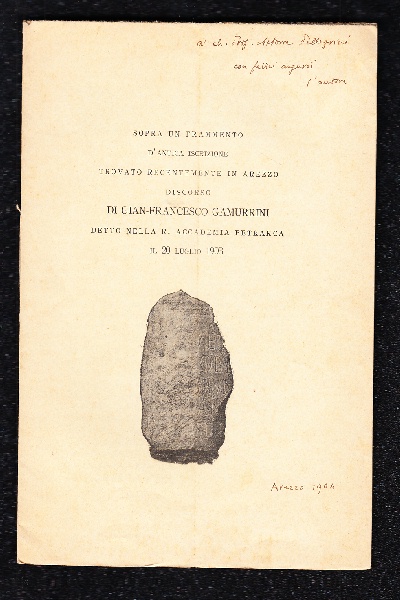 al ch. Prof. Astorre Pellegrini
con felici auguri
l'autore
SOPRA UN FRAMMENTO
D'ANTICA ISCRIZIONE
TROVATO RECENTEMENTE IN AREZZO
DISCORSO
DI GIAN-FRANCESCO GAMURRINI
DETTO NELLA R. ACCADEMIA PETRARCA
IL 20 LUGLIO 1903
Arezzo 1904